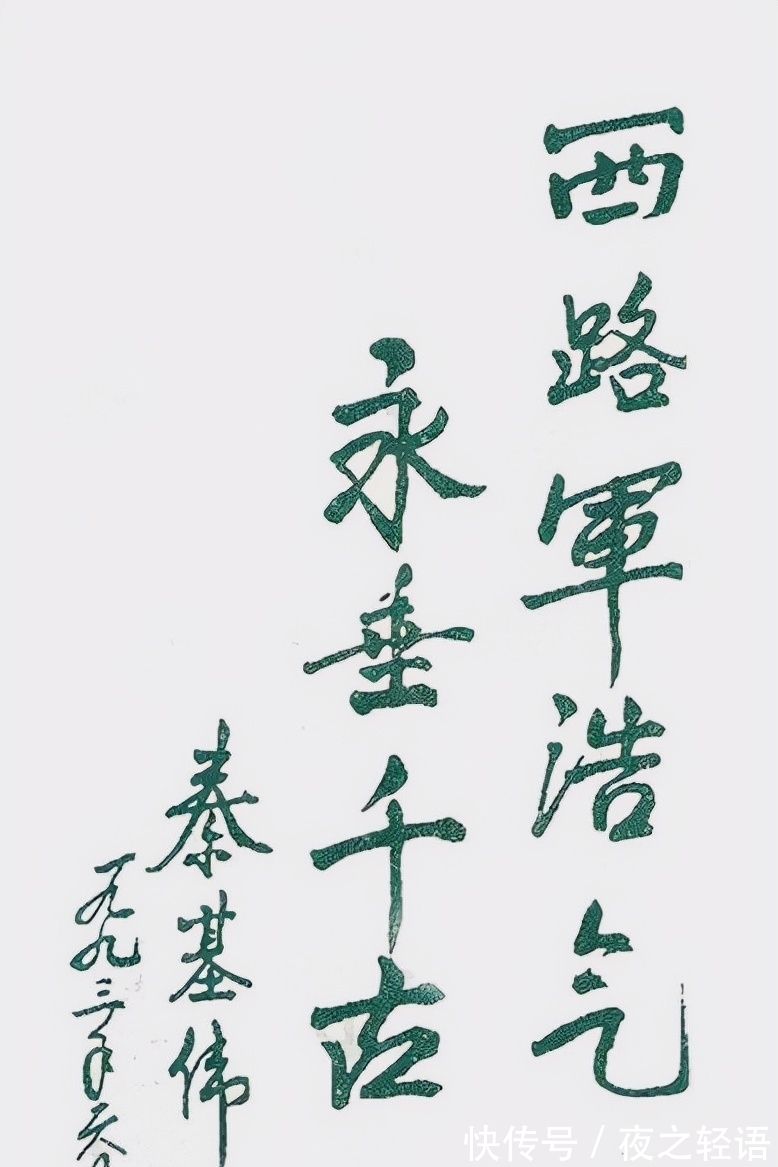 西路軍浩气
永垂千古
秦基伟
一九九三年六
快传号/夜之轻语